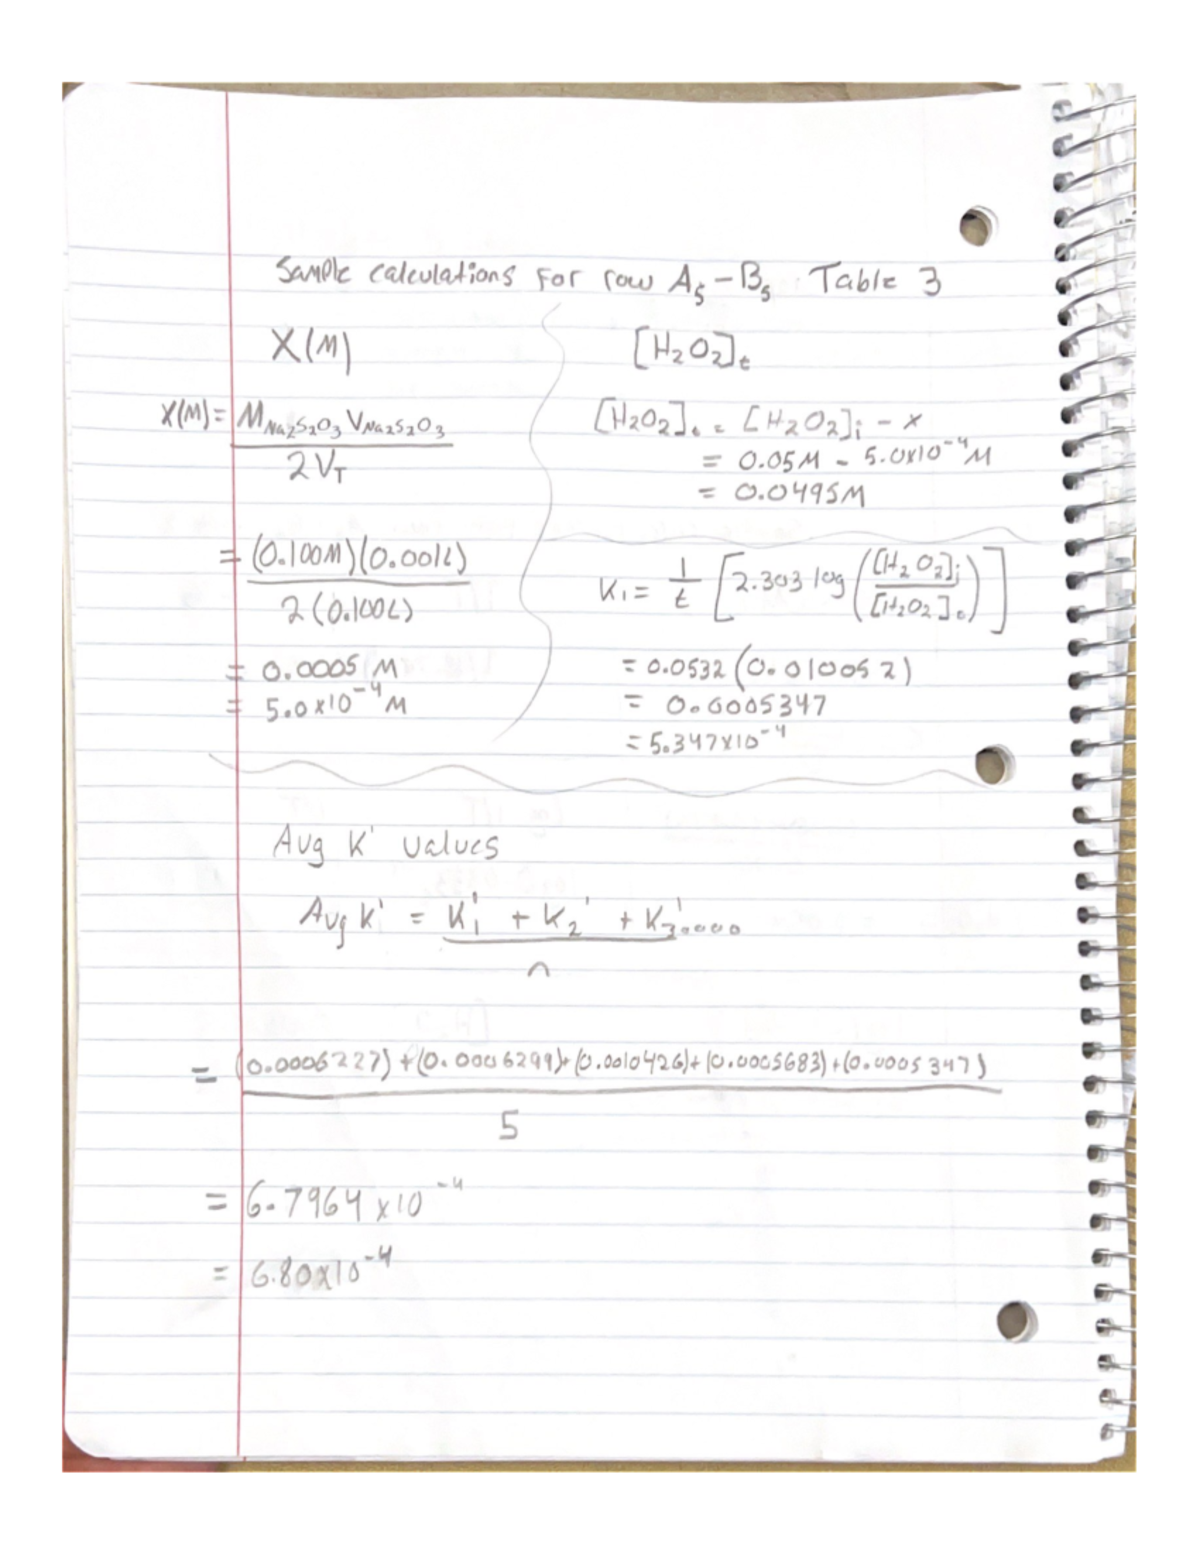 Sample calculations For row A5-B5 Table 3
X(M)
X(M) = M Na2S2O3 V Na2S2O3
2 VT
= (0.100M)(0.001L)
2(0.100L)
= 0.0005 M
= 5.0x10^-4 M
[H2O2]t
[H2O2]o = [H2O2]i - x
= 0.05M - 5.0x10^-4 M
= 0.0495M
K1 = 1/t [2.303 log ([H2O2]i / [H2O2]o)]
= 0.0532 (0.010052)
= 0.0005347
= 5.347x10^-4
Avg K' values
Avg K' = K1' + K2' + K3'....
n
= (0.0006227)+(0.0006299)+(0.0010426)+(0.0005683)+(0.0005347)
5
= 6.7964 x10^-4
= 6.80x10^-4